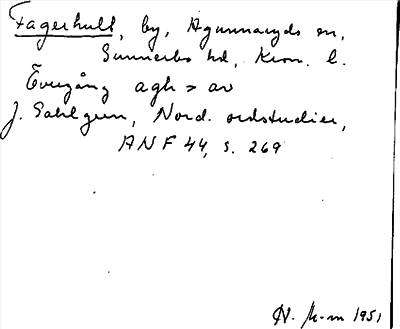 Fagerhult, by, Agunnaryds sn,
Sunnerbo hd, Kron. l.
Övergång agh > av
J. Sahlgren, Nord. ordstudier,
ANF 44, s. 269
N. 1951